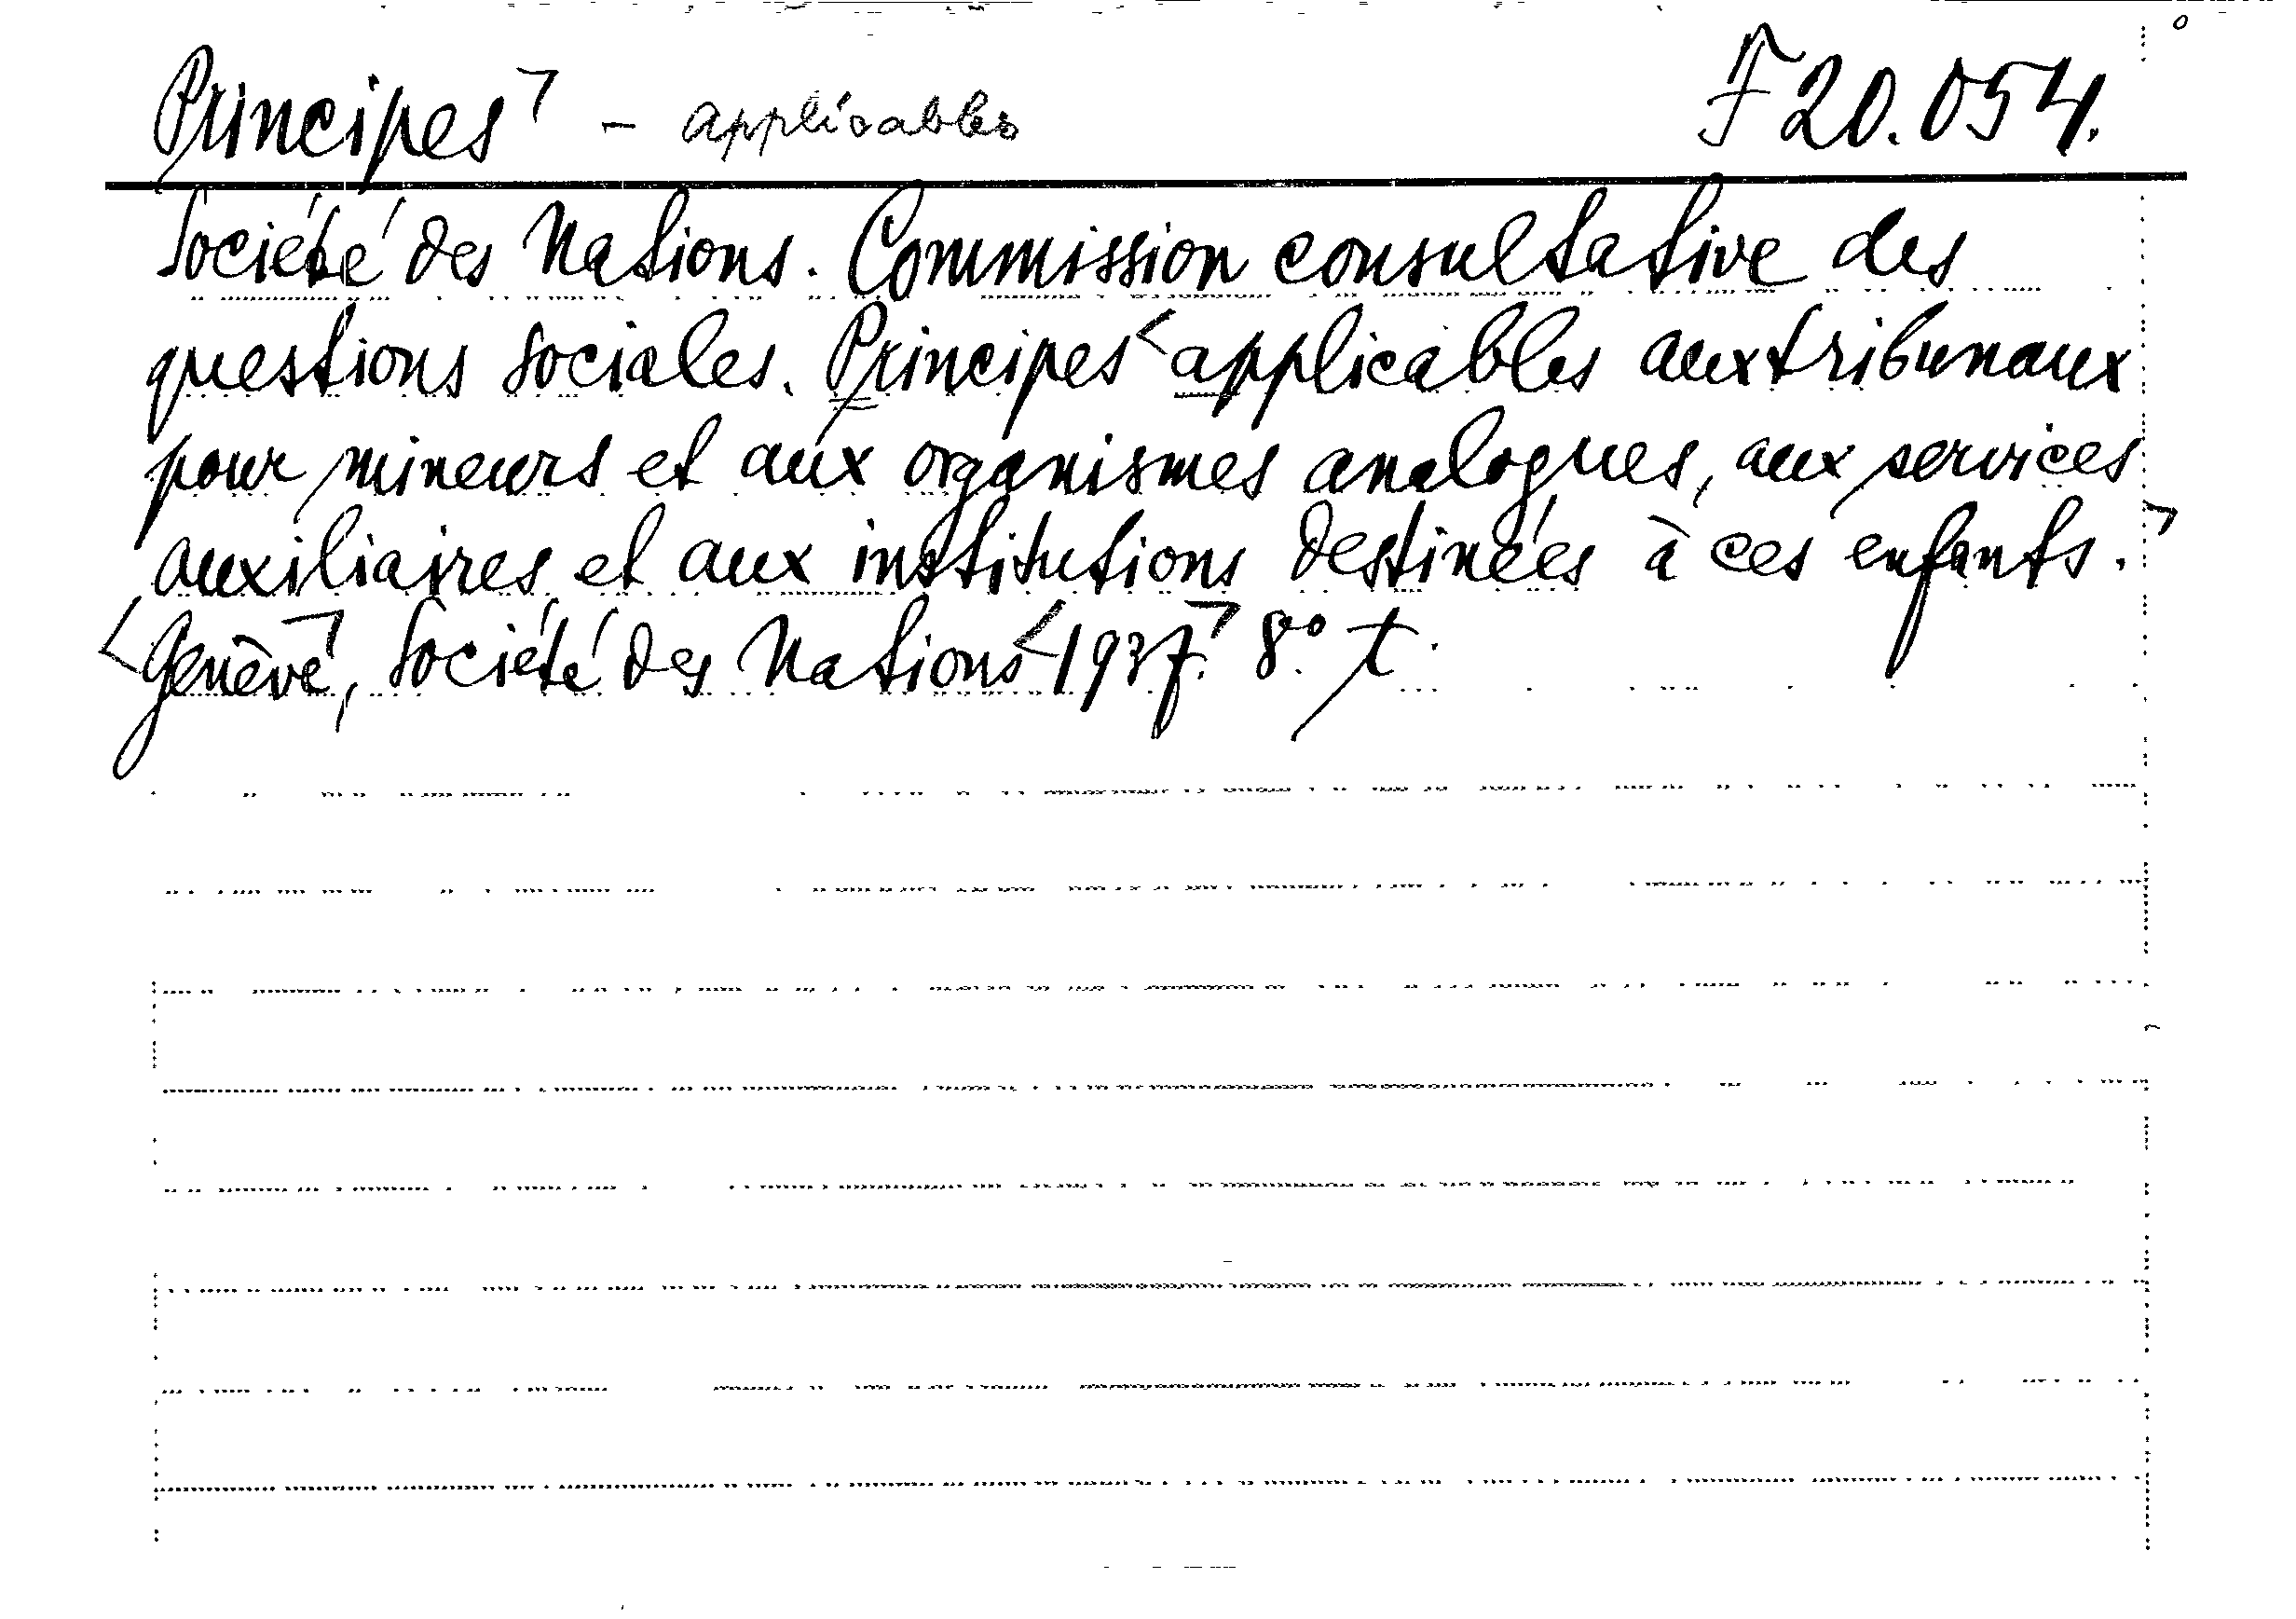 Principes - applicables F 20.054.
Société des Nations. Commission consultative des
questions sociales. Principes applicables aux tribunaux
pour mineurs et aux organismes analogues, aux services
auxiliaires et aux institutions destinées à ces enfants.
Genève, Société des Nations 1937. 8° t.